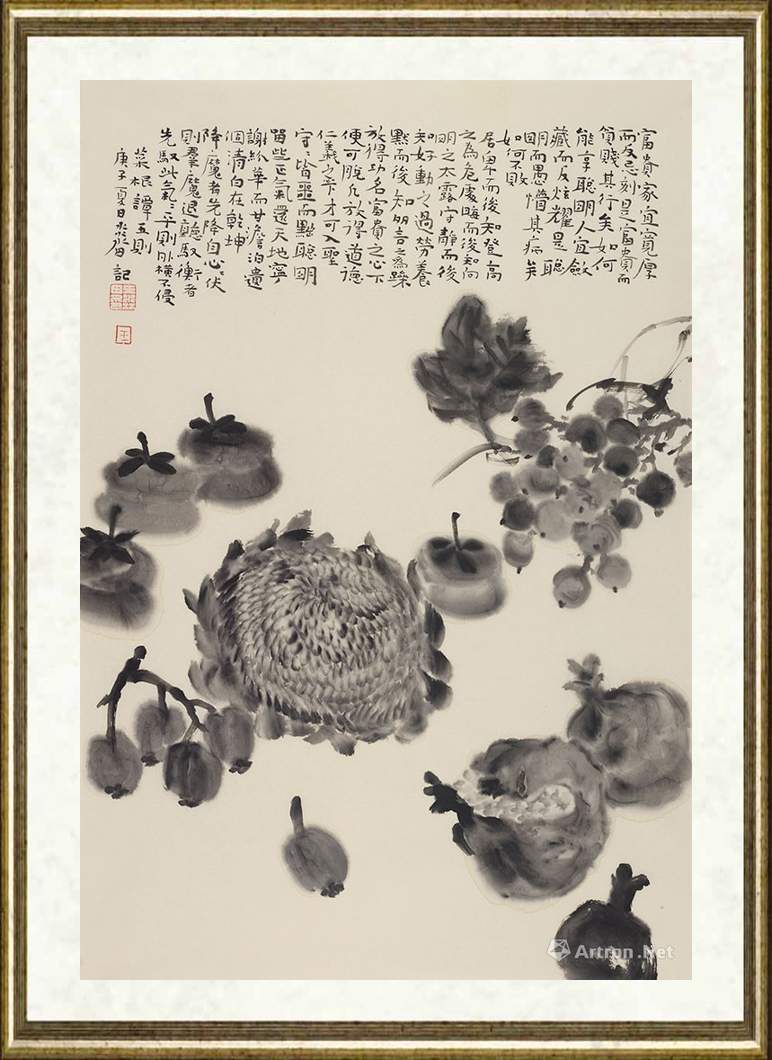 富貴家宜寬厚
而反忌刻是富貴而
貧賤其行矣如何
能享聰明人宜斂
藏而反炫耀是聰
明而愚懵其病矣
如何不敗
居卑而後知登高
之為危處晦而後知向
明之太露守靜而後
知好動之過勞養
默而後知多言之為躁
放得功名富貴之心下
便可脫凡放得道德
仁義之心下才可入聖
守噩而黜聰明
留些正氣還天地寧
謝紛華而甘澹泊遺
個清白在乾坤
降魔者先降自心心伏
則群魔退聽馭衡者
先馭此氣氣平則外橫不侵
菜根譚五則
庚子夏日記
Artron.Net